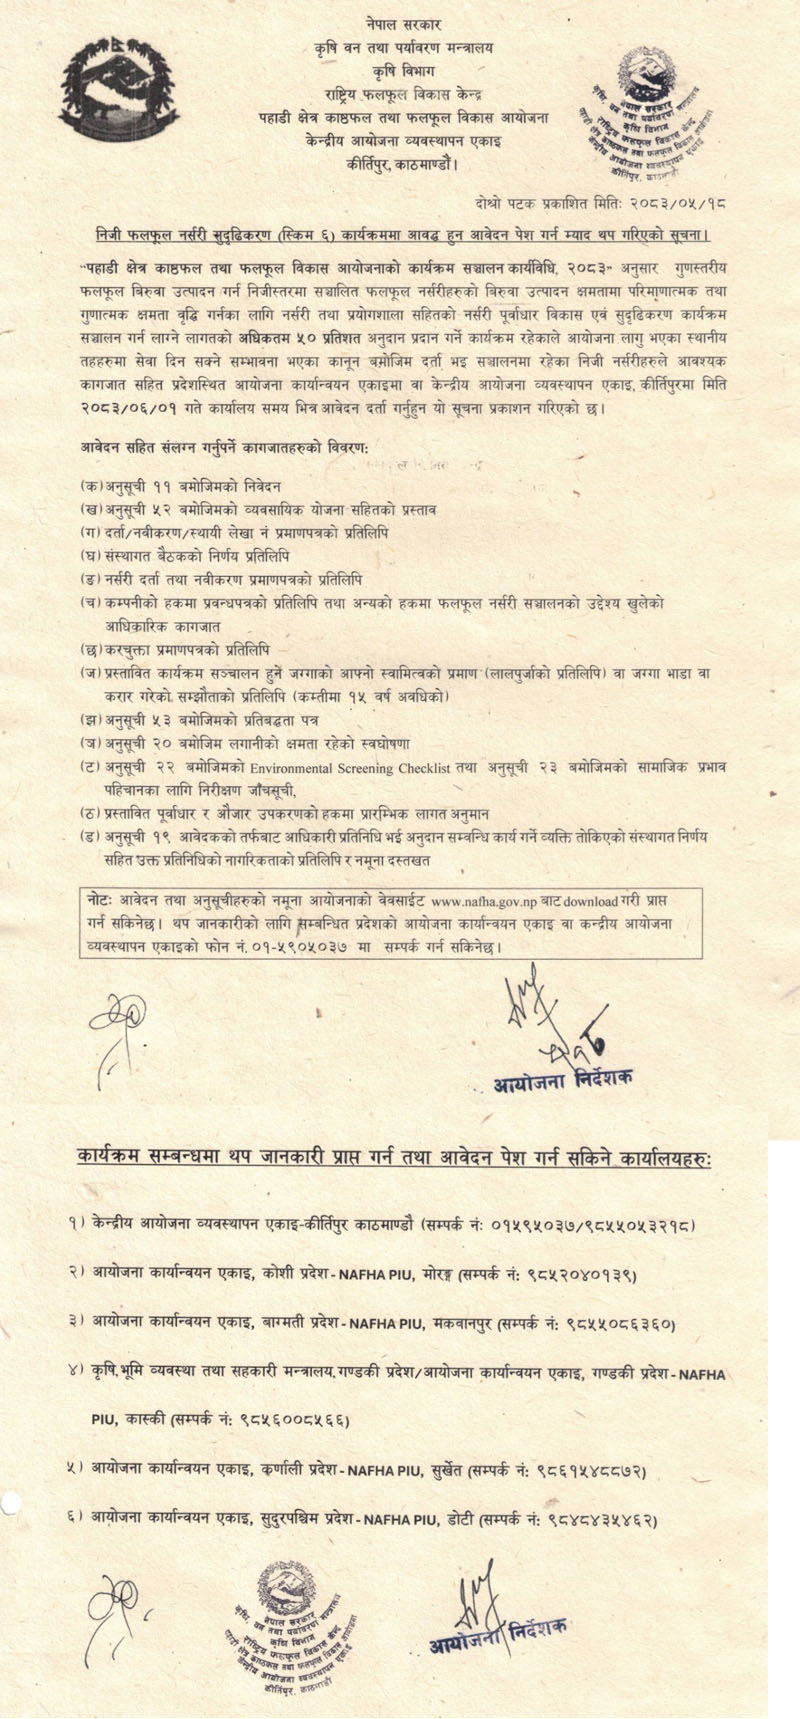 नेपाल सरकार
कृषि वन तथा पर्यावरण मन्त्रालय
कृषि विभाग
राष्ट्रिय फलफूल विकास केन्द्र
पहाडी क्षेत्र काष्ठफल तथा फलफूल विकास आयोजना
केन्द्रीय आयोजना व्यवस्थापन एकाइ
कीर्तिपुर, काठमाण्डौं।
नेपाल सरकार
कृषि, वन तथा पर्यावरण मन्त्रालय
कृषि विभाग
राष्ट्रिय फलफूल विकास केन्द्र
पहाडी क्षेत्र काष्ठफल तथा फलफूल विकास आयोजना
केन्द्रीय आयोजना व्यवस्थापन एकाइ
कीर्तिपुर, काठमाडौं
दोश्रो पटक प्रकाशित मितिः २०८३/०५/१८
निजी फलफूल नर्सरी सुदृढिकरण (स्किम ६) कार्यक्रममा आवद्ध हुन आवेदन पेश गर्न म्याद थप गरिएको सूचना।
"पहाडी क्षेत्र काष्ठफल तथा फलफूल विकास आयोजनाको कार्यक्रम सञ्चालन कार्यविधि, २०८३" अनुसार गुणस्तरीय
फलफूल बिरुवा उत्पादन गर्न निजीस्तरमा सञ्चालित फलफूल नर्सरीहरुको बिरुवा उत्पादन क्षमतामा परिमाणात्मक तथा
गुणात्मक क्षमता वृद्धि गर्नका लागि नर्सरी तथा प्रयोगशाला सहितको नर्सरी पूर्वाधार विकास एवं सुदृढिकरण कार्यक्रम
सञ्चालन गर्न लाग्ने लागतको अधिकतम ५० प्रतिशत अनुदान प्रदान गर्ने कार्यक्रम रहेकाले आयोजना लागु भएका स्थानीय
तहहरुमा सेवा दिन सक्ने सम्भावना भएका कानून बमोजिम दर्ता भइ सञ्चालनमा रहेका निजी नर्सरीहरुले आवश्यक
कागजात सहित प्रदेशस्थित आयोजना कार्यान्वयन एकाइमा वा केन्द्रीय आयोजना व्यवस्थापन एकाइ, कीर्तिपुरमा मिति
२०८३/०६/०१ गते कार्यालय समय भित्र आवेदन दर्ता गर्नुहुन यो सूचना प्रकाशन गरिएको छ।
आवेदन सहित संलग्न गर्नुपर्ने कागजातहरुको विवरण:
(क) अनुसूची ११ बमोजिमको निवेदन
(ख) अनुसूची ५२ बमोजिमको व्यवसायिक योजना सहितको प्रस्ताव
(ग) दर्ता/नवीकरण/स्थायी लेखा नं प्रमाणपत्रको प्रतिलिपि
(घ) संस्थागत बैठकको निर्णय प्रतिलिपि
(ङ) नर्सरी दर्ता तथा नवीकरण प्रमाणपत्रको प्रतिलिपि
(च) कम्पनीको हकमा प्रवन्धपत्रको प्रतिलिपि तथा अन्यको हकमा फलफूल नर्सरी सञ्चालनको उद्देश्य खुलेको
आधिकारिक कागजात
(छ) करचुक्ता प्रमाणपत्रको प्रतिलिपि
(ज) प्रस्तावित कार्यक्रम सञ्चालन हुने जग्गाको आफ्नो स्वामित्वको प्रमाण (लालपुर्जाको प्रतिलिपि) वा जग्गा भाडा वा
करार गरेको सम्झौताको प्रतिलिपि (कम्तीमा १५ वर्ष अवधिको)
(झ) अनुसूची ५३ बमोजिमको प्रतिबद्धता पत्र
(ञ) अनुसूची २० बमोजिम लगानीको क्षमता रहेको स्वघोषणा
(ट) अनुसूची २२ बमोजिमको Environmental Screening Checklist तथा अनुसूची २३ बमोजिमको सामाजिक प्रभाव
पहिचानका लागि निरीक्षण जाँचसूची,
(ठ) प्रस्तावित पूर्वाधार र औजार उपकरणको हकमा प्रारम्भिक लागत अनुमान
(ड) अनुसूची १९ आवेदकको तर्फबाट आधिकारी प्रतिनिधि भई अनुदान सम्बन्धि कार्य गर्ने व्यक्ति तोकिएको संस्थागत निर्णय
सहित उक्त प्रतिनिधिको नागरिकताको प्रतिलिपि र नमूना दस्तखत
नोटः आवेदन तथा अनुसूचीहरुको नमूना आयोजनाको वेवसाईट www.nafha.gov.np बाट download गरी प्राप्त
गर्न सकिनेछ। थप जानकारीको लागि सम्बन्धित प्रदेशको आयोजना कार्यान्वयन एकाइ वा कन्द्रीय आयोजना
व्यवस्थापन एकाइको फोन नं. ०१-५९०५०३७ मा सम्पर्क गर्न सकिनेछ।
आयोजना निर्देशक
कार्यक्रम सम्बन्धमा थप जानकारी प्राप्त गर्न तथा आवेदन पेश गर्न सकिने कार्यालयहरुः
१) केन्द्रीय आयोजना व्यवस्थापन एकाइ-कीर्तिपुर काठमाण्डौ (सम्पर्क नंः ०१५९५०३७/९८५५०५३२१८)
२) आयोजना कार्यान्वयन एकाइ, कोशी प्रदेश - NAFHA PIU, मोरङ्ग (सम्पर्क नं: ९८५२०४०१३९)
३) आयोजना कार्यान्वयन एकाइ, बाग्मती प्रदेश - NAFHA PIU, मकवानपुर (सम्पर्क नं: ९८५५०८६३६०)
४) कृषि,भूमि व्यवस्था तथा सहकारी मन्त्रालय,गण्डकी प्रदेश/आयोजना कार्यान्वयन एकाइ, गण्डकी प्रदेश - NAFHA
PIU, कास्की (सम्पर्क नं: ९८५६००८५६६)
५) आयोजना कार्यान्वयन एकाइ, कर्णाली प्रदेश - NAFHA PIU, सुर्खेत (सम्पर्क नं: ९८६१५४८८७२)
६) आयोजना कार्यान्वयन एकाइ, सुदुरपश्चिम प्रदेश - NAFHA PIU, डोटी (सम्पर्क नं: ९८४८४३५४६२)
नेपाल सरकार
कृषि, वन तथा पर्यावरण मन्त्रालय
कृषि विभाग
राष्ट्रिय फलफूल विकास केन्द्र
पहाडी क्षेत्र काष्ठफल तथा फलफूल विकास आयोजना
केन्द्रीय आयोजना व्यवस्थापन एकाइ
कीर्तिपुर, काठमाडौं
आयोजना निर्देशक